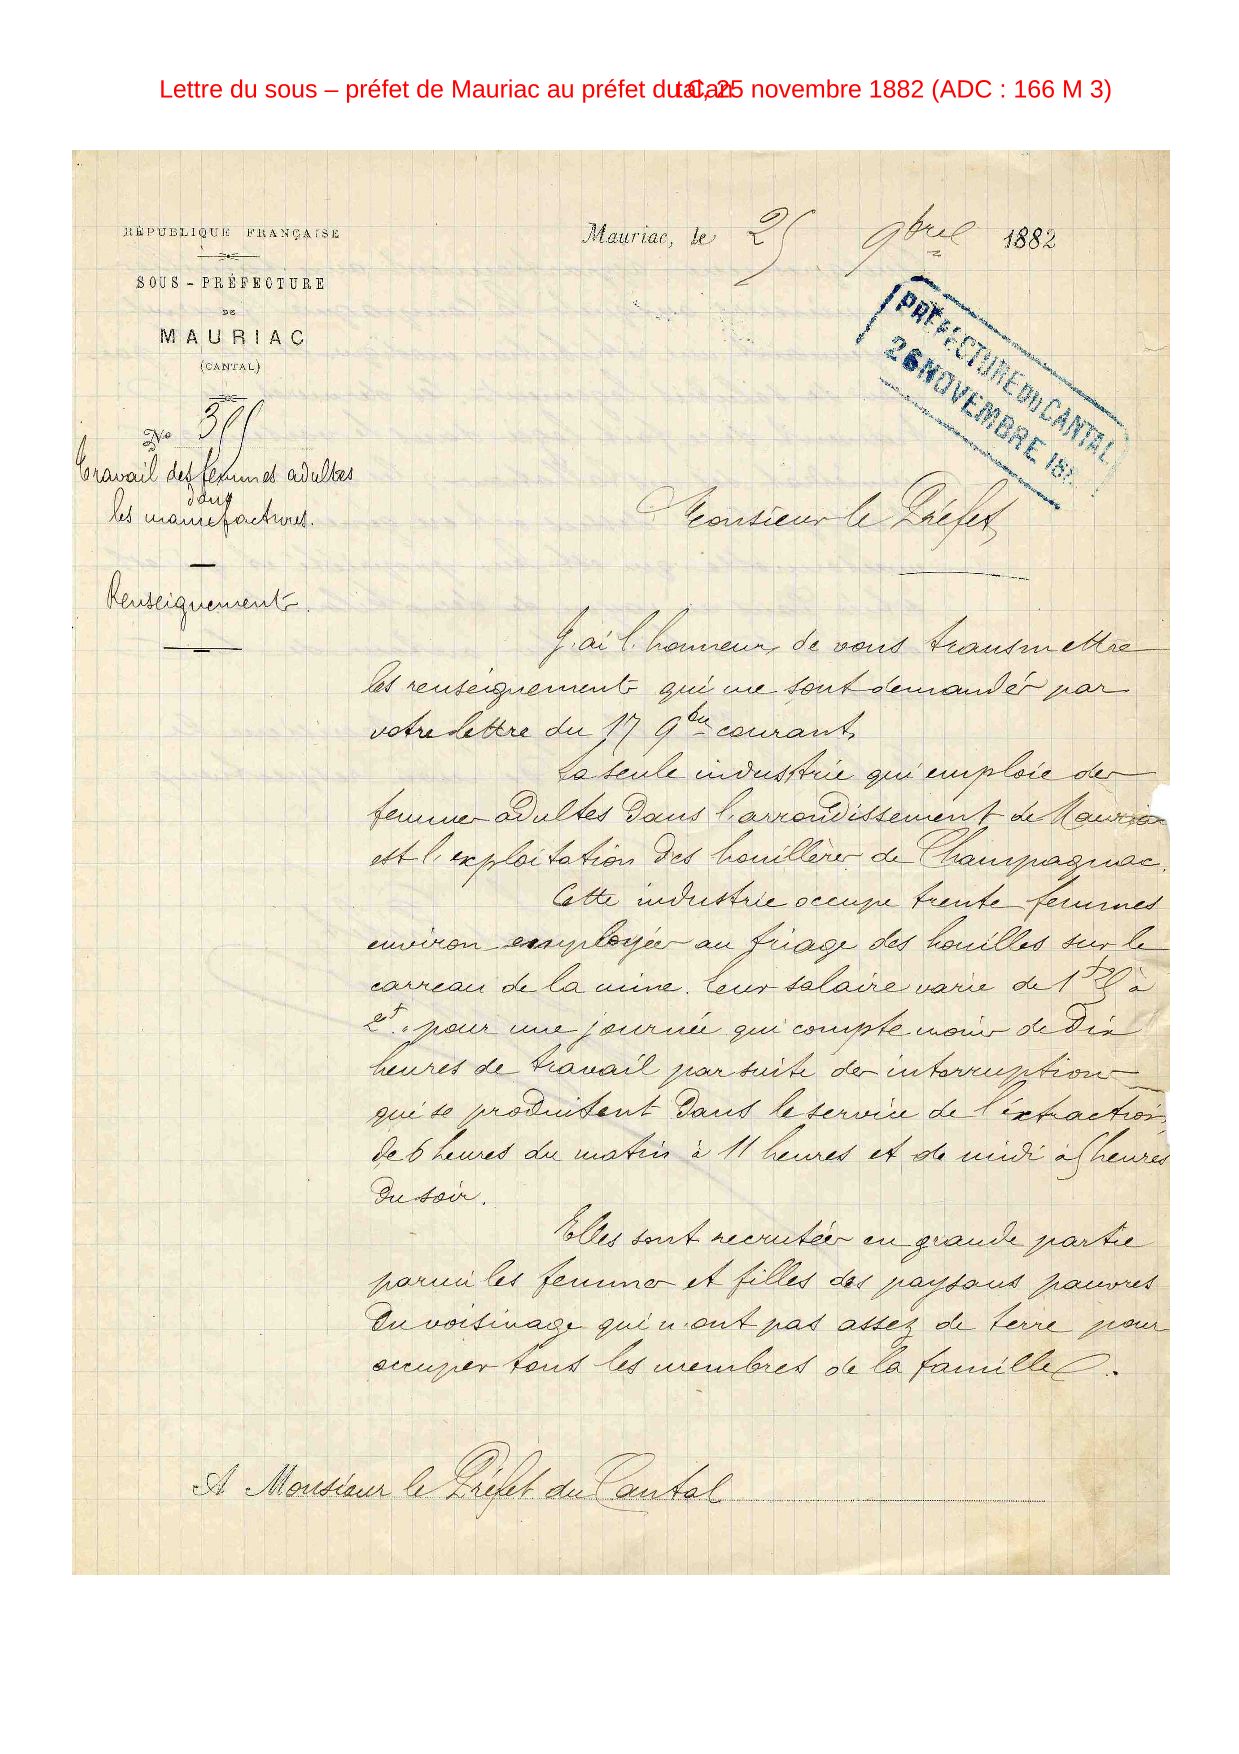 Lettre du sous – préfet de Mauriac au préfet du Cantal, 25 novembre 1882 (ADC : 166 M 3)
RÉPUBLIQUE FRANÇAISE
SOUS-PRÉFECTURE
DE
MAURIAC
(CANTAL)
Mauriac, le 25 9brel 1882
PRÉFECTURE DU CANTAL
26 NOVEMBRE 188
No
Travail des femmes adultes
dans
les manufactures.
Renseignements.
Monsieur le Préfet,
J'ai l'honneur, de vous transmettre
les renseignements qui me sont demandés par
votre lettre du 17 9bre courant.
La seule industrie qui emploie des
femmes adultes dans l'arrondissement de Mauriac
est l'exploitation des houillères de Champagnac.
Cette industrie occupe trente femmes
environ employées au triage des houilles sur le
carreau de la mine. Leur salaire varie de 1f à
2f. pour une journée qui compte moins de Dix
heures de travail par suite des interruptions
qui se produisent dans le service de l'extraction
de 6 heures du matin à 11 heures et de midi à 5 heures
du soir.
Elles sont recrutées en grande partie
parmi les femmes et filles des paysans pauvres
du voisinage qui n'ont pas assez de terre pour
occuper tous les membres de la famille.
A Monsieur le Préfet du Cantal